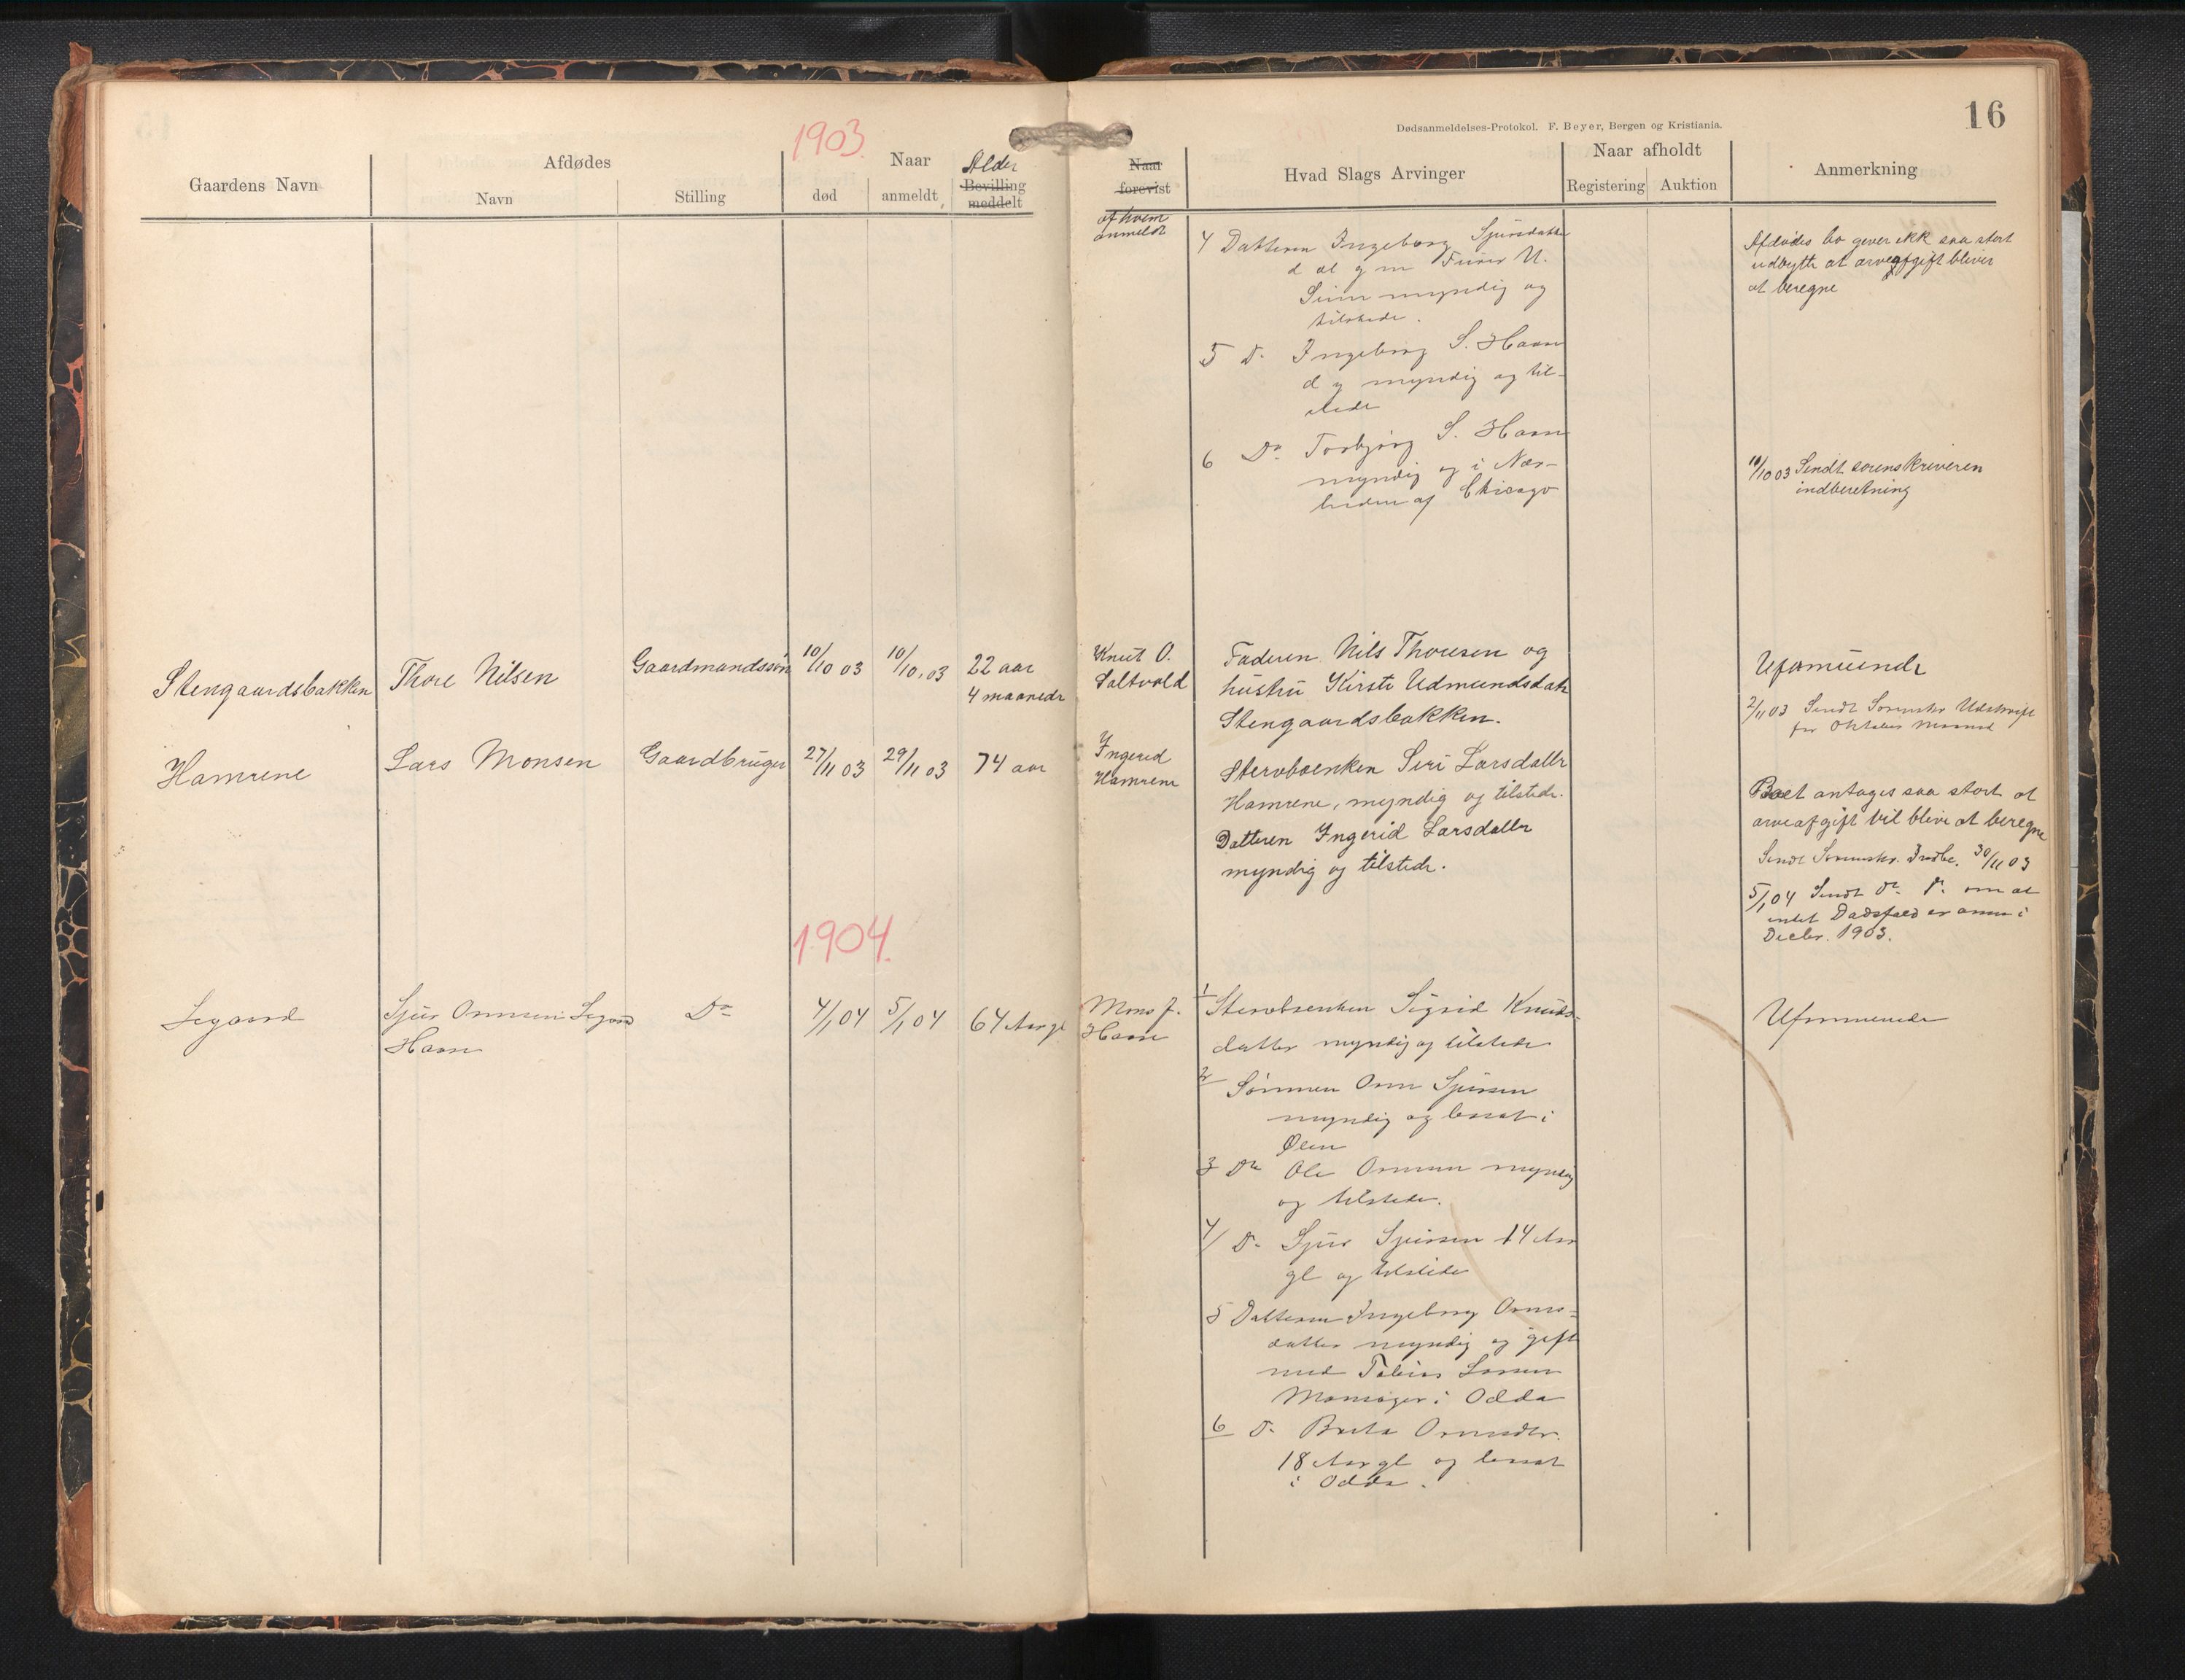 16
Dødsanmeldelses-Protokol. F. Beyer, Bergen og Kristiania.
1903.
Gaardens Navn
Afdødes
Navn
Stilling
Naar
død
anmeldt
Alder
Bevilling
meddelt
Naar
forevist
af hvem
anmeldt
Hvad Slags Arvinger
Naar afholdt
Registering
Auktion
Anmerkning
4 Datteren Ingeborg Sjursdatter
myndig og
tilstede.
5 Do Ingeborg S. Haan
myndig og til-
stede
6 Do Torbjørg S. Haan
myndig og i Nær-
heden af Chicago
Afdødes bo giver ikk saa stort
udbytte at arveafgift bliver
at beregne
10/10 03 Sendt sorenskriveren
indberetning
Stengaardsbakken
Thore Nilsen
Gaardmandssøn
10/10 03
10/10.03
22 aar
4 maaneder
Knut O.
Saltvold
Faderen Nils Thoresen og
hustru Kirsti Udmundsdatr
Stengaardsbakken.
Uformuende
2/11 03 Sendt Sorenskr Udskrift
for Oktober Maaned
Hamrene
Lars Monsen
Gaardbruger
27/11 03
29/11 03
74 aar
Ingerid
Hamrene
Stervboenken Siri Larsdatter
Hamrene, myndig og tilstede.
Datteren Ingerid Larsdatter
myndig og tilstede.
Boet antages saa stort at
arveafgift vil blive at beregne
Sendt Sorenskr. Indbr. 30/11 03
5/1 04 Sendt Do Do om at
intet Dødsfald er anm i
Decbr. 1903.
1904.
Legaard
Sjur Ormsen Legaard
Haan
Do
4/1 04
5/1 04
64 Aar gl
Mons J.
Haan
1 Stervboenken Sigrid Knuds-
datter myndig og tilstede
2 Sønnen Orm Sjursen
myndig og bosat i
Ølen
3 Do Ole Ormsen myndig
og tilstede.
4/ Do Sjur Sjursen 14 Aar
gl og tilstede
5 Datteren Ingeborg Orms-
datter myndig og gift
med Tobias Larsen
i Odda
6 Do Brita Ormsdtr.
18 Aar gl og bosat
i Odda.
Uformuende